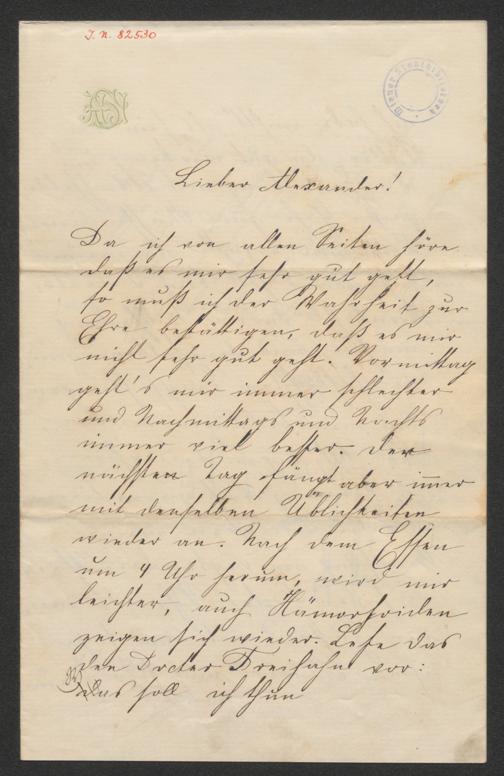 J. N. 82530
AS
Wiener Stadtbibliothek
Lieber Alexander!
Da ich von allen Seiten höre
daß es mir sehr gut geht,
so muß ich der Wahrheit zur
Ehre bestättigen, daß es mir
nicht sehr gut geht. Vormittag
geht's mir immer schlechter
und Nachmittags und Nachts
immer viel besser. Den
nächsten Tag fängt aber im̅er
mit denselben Üblichkeiten
wieder an. Nach dem Essen
um 4 Uhr herum, wird mir
leichter, auch Hämorhoiden
zeigen sich wieder. Lese das
den Docter Freihahn vor:
Was soll ich thun